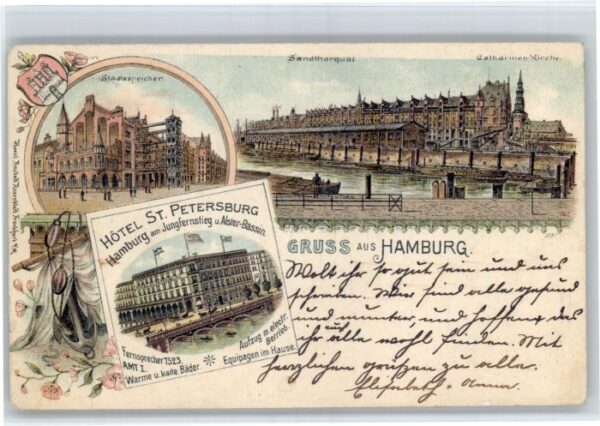 Staatsspeicher.
Sandthorquai
Catharinen-Kirche.
HÔTEL ST. PETERSBURG
Hamburg am Jungfernstieg u. Alster-Bassin.
Fernsprecher 7523
AMT I.
Warme u. kalte Bäder
Aufzug m. electr.
Betrieb.
Equipagen im Hause
GRUSS AUS HAMBURG.
Wolt ihr so gut sein und uns
schreiben. Wir sind alle gesund
und munter, und hoffen das
ihr auch alle wohl finden. Mit
herzlichen grüßen zu alle.
Elisabeth. Anna.